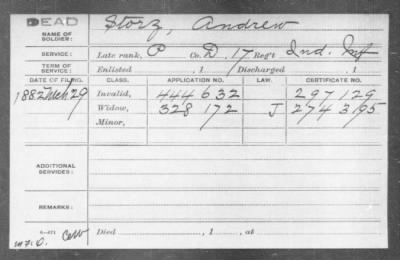 DEAD
NAME OF SOLDIER: Storz, Andrew
SERVICE: Late rank, P Co. D, 17 Reg't Ind. Inf
TERM OF SERVICE: Enlisted , 1 Discharged , 1
DATE OF FILING. CLASS. APPLICATION NO. LAW. CERTIFICATE NO.
1882 Mch 29 Invalid, 444 632 297 129
Widow, 328 172 J 274 395
Minor,
ADDITIONAL SERVICES:
REMARKS:
Died , 1 , at